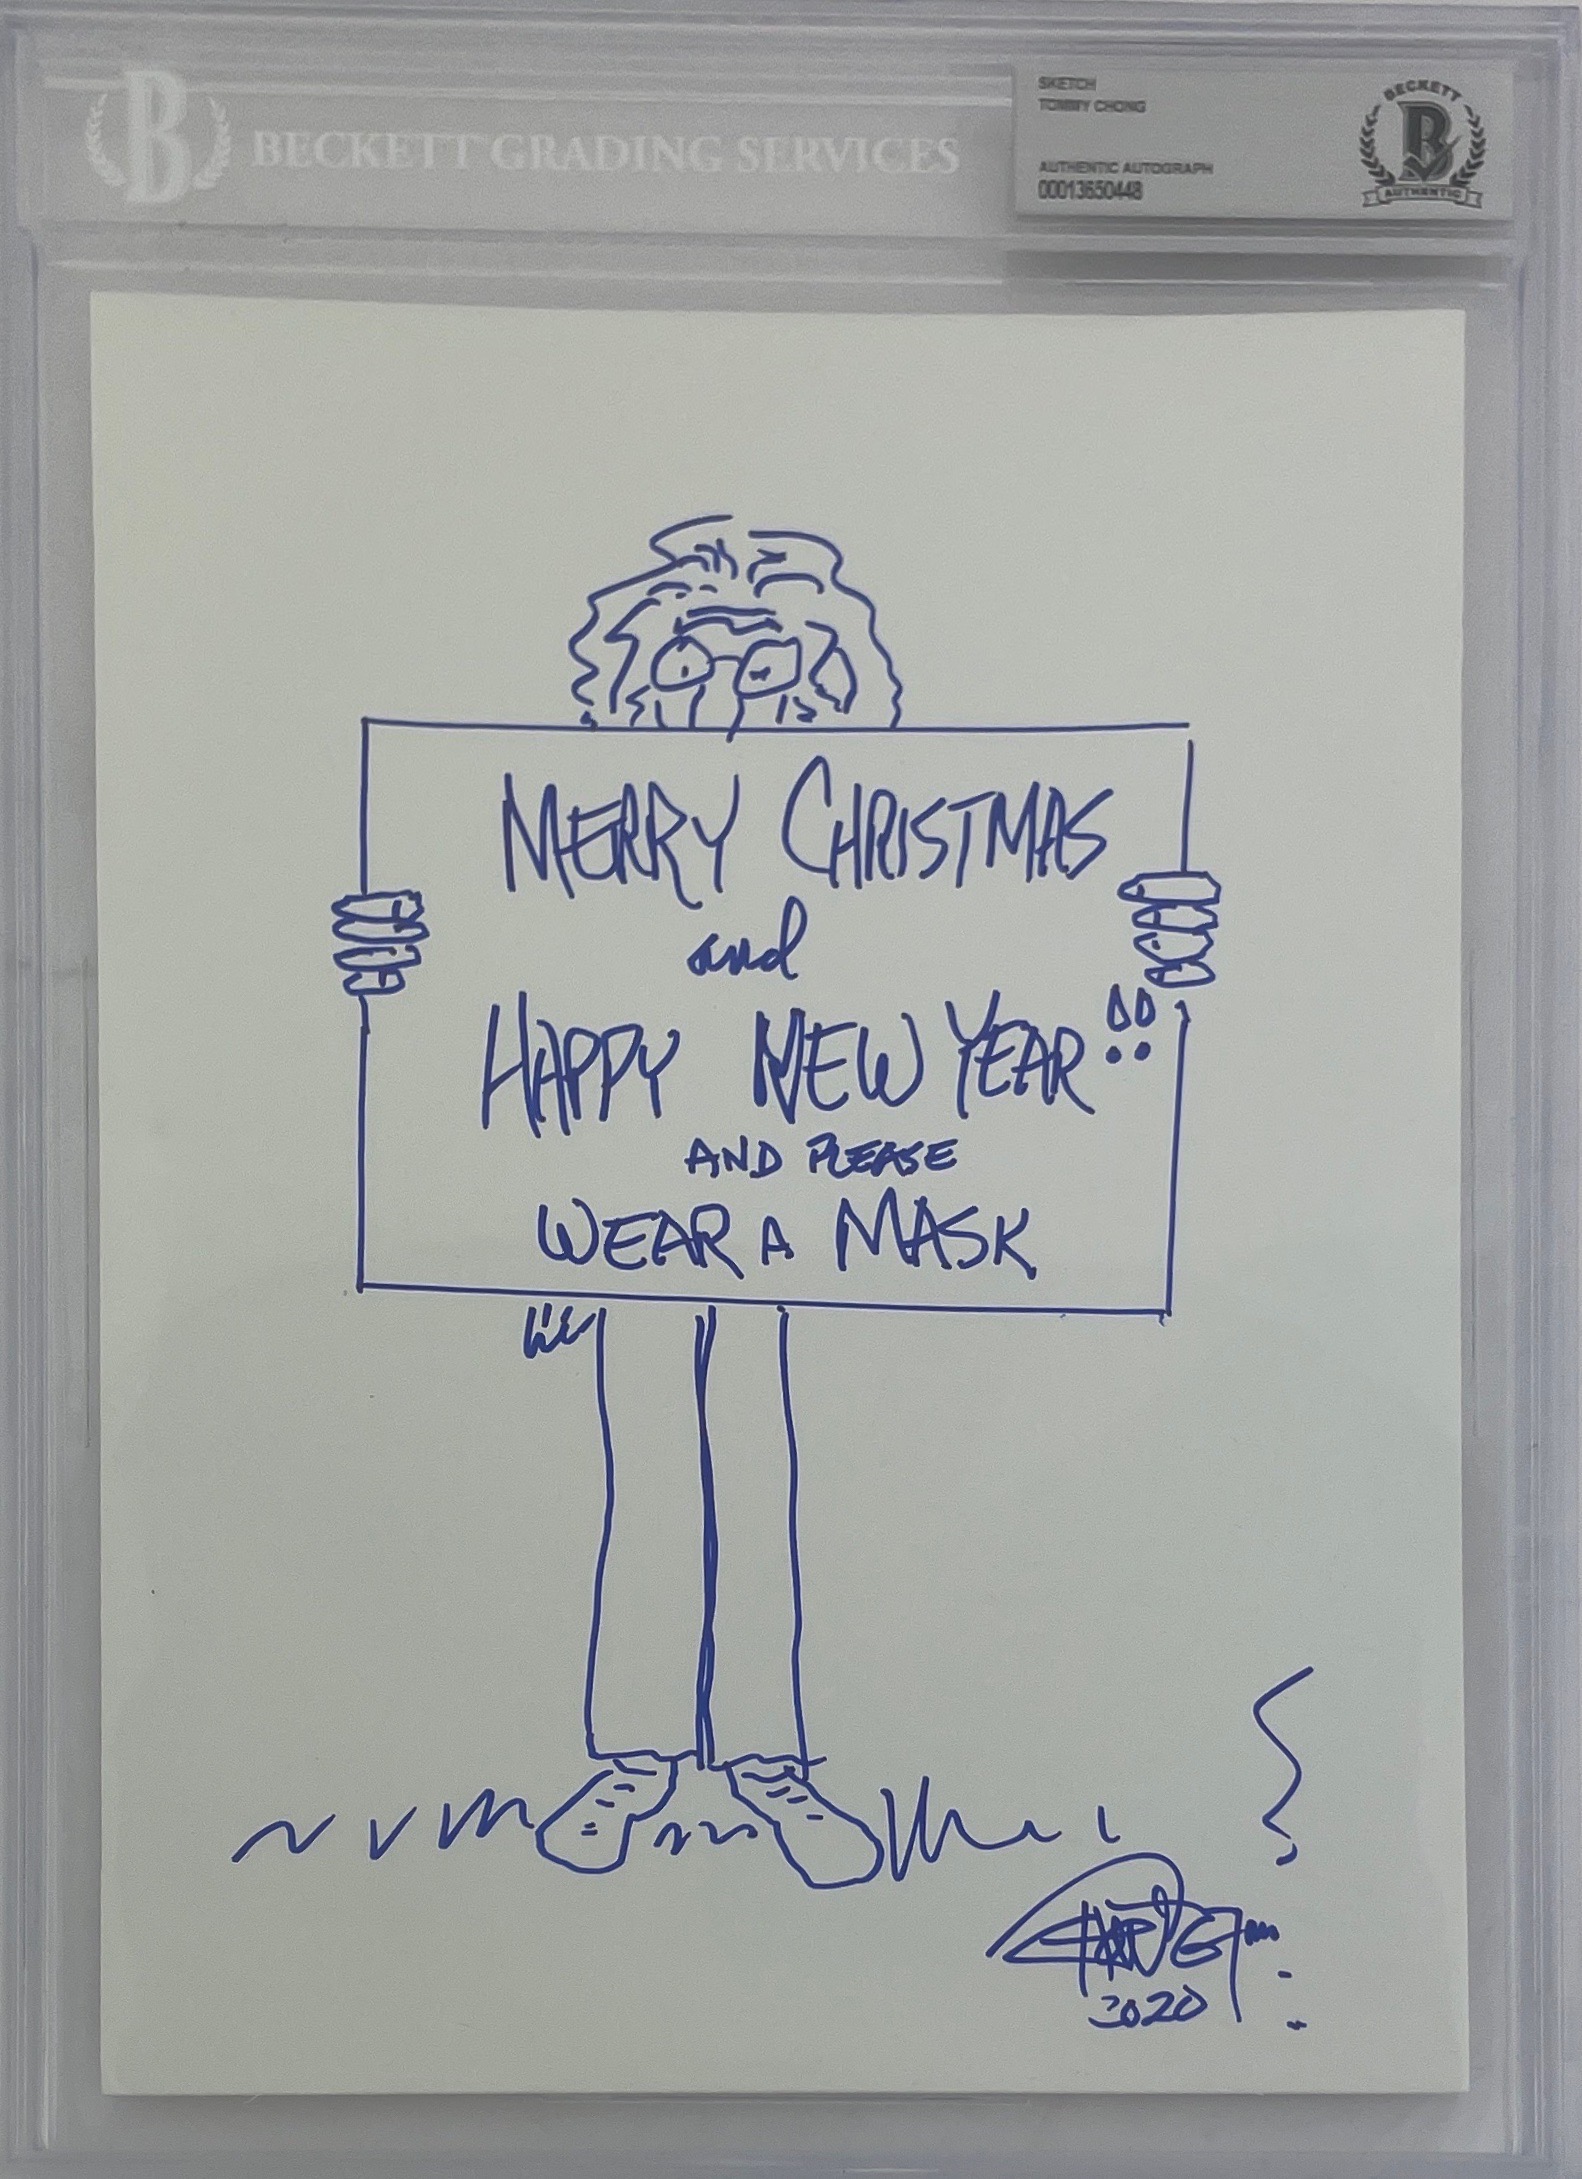 BECKETT GRADING SERVICES
SKETCH
TOMMY CHONG
AUTHENTIC AUTOGRAPH
00013650448
BECKETT
B
AUTHENTIC
MERRY CHRISTMAS
and
HAPPY NEW YEAR!!
AND PLEASE
WEAR A MASK
2020